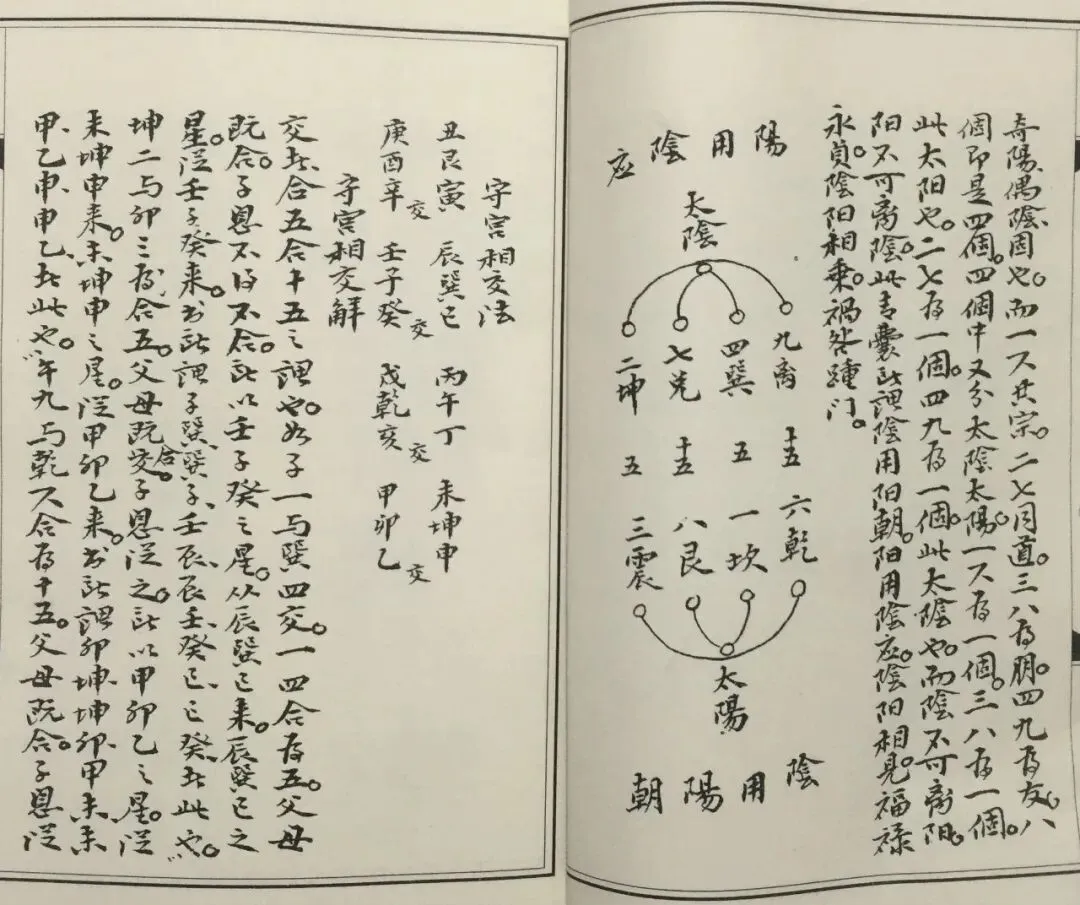 奇陽偶陰固也。而一六共宗。二七同道。三八为朋。四九为友。八
個即是四個。四個中又分太陰太陽。一六为一個。三八为一個。
此太阳也。二七为一個。四九为一個。此太陰也。而陰不可离阳。
阳不可离陰。此青囊所謂陰用阳朝。阳用陰应。陰阳相見。福禄
永貞。陰阳相乘。禍咎踵门。
陽用陰应
太陰
九离 四巽 七兑 二坤
十五 五 十五 五
六乾 一坎 八艮 三震
太陽
陰用陽朝
守宫相交法
丑艮寅 辰巽巳 丙午丁 未坤申
庚酉辛 交 壬子癸 交 戌乾亥 交 甲卯乙 交
守宫相交解
交者合五合十五之謂也。如子一与巽四交。一四合为五。父母
既合。子息不得不合。所以壬子癸之星。从辰巽巳来。辰巽巳之
星。從壬子癸来。書所謂子巽、巽子、壬辰、辰壬、癸巳、巳癸者此也。
坤二与卯三为合五。父母既交合。子息從之。所以甲卯乙之星。從
未坤申来。未坤申之星。從甲卯乙来。書所謂卯坤、坤卯、甲未、未
甲、乙申、申乙、者此也。午九与乾六合为十五。父母既合。子息從